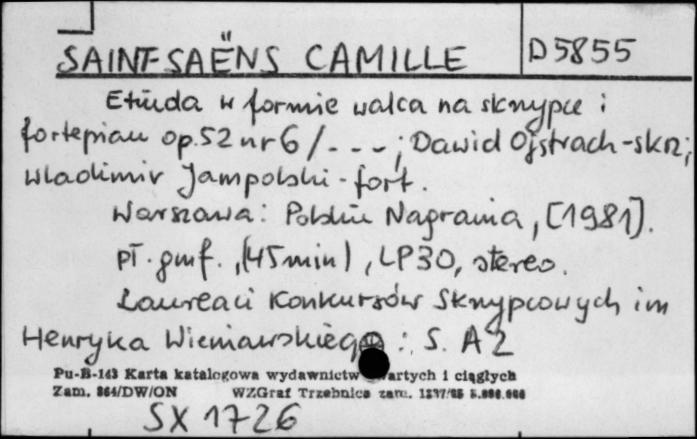 SAINT-SAËNS CAMILLE
D 5855
Etiuda w formie walca na skrzypce i
fortepian op. 52 nr 6 / - - - ; Dawid Ojstrach - skrz;
Władimir Jampolski - fort.
Warszawa: Polskie Nagrania, [1981].
pł. gmf., (45 min), LP30, stereo.
Laureaci Konkursów Skrzypcowych im
Henryka Wieniawskiego : S. A 2
Pu-B-143 Karta katalogowa wydawnictw zwartych i ciągłych
Zam. 864/DW/ON WZGraf Trzebnica zam. 1237/85 5.000.000
SX 1726